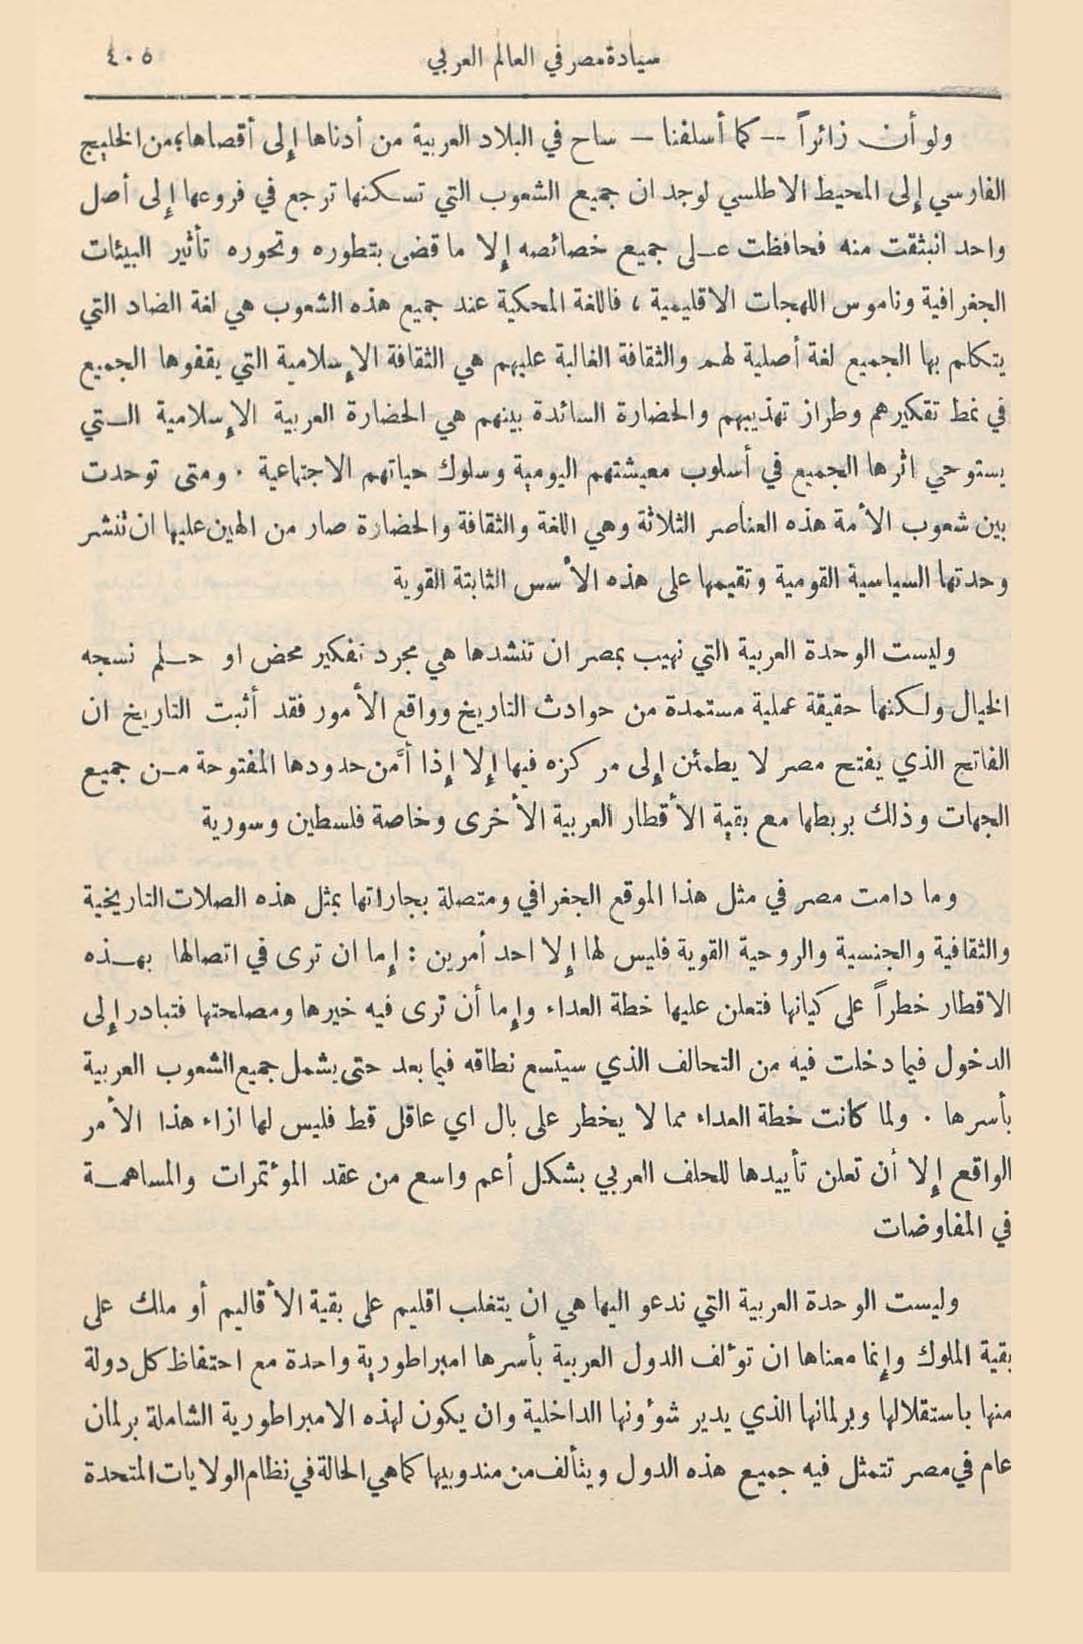 سيادة مصر في العالم العربي ٤٠٥
ولو أن زائراً -- كما أسلفنا -- ساح في البلاد العربية من أدناها إلى أقصاها، من الخليج
الفارسي إلى المحيط الاطلسي لوجد ان جميع الشعوب التي تسكنها ترجع في فروعها إلى أصل
واحد انبثقت منه فحافظت على جميع خصائصه إلا ما قضى بتطوره وتحوره تأثير البيئات
الجغرافية وناموس اللهجات الاقليمية ، فاللغة المحكية عند جميع هذه الشعوب هي لغة الضاد التي
يتكلم بها الجميع لغة أصلية لهم والثقافة الغالبة عليهم هي الثقافة الإسلامية التي يقفوها الجميع
في نمط تفكيرهم وطراز تهذيبهم والحضارة السائدة بينهم هي الحضارة العربية الإسلامية الـتي
يستوحي اثرها الجميع في أسلوب معيشتهم اليومية وسلوك حياتهم الاجتماعية . ومتى توحدت
بين شعوب الأمة هذه العناصر الثلاثة وهي اللغة والثقافة والحضارة صار من الهين عليها ان تنشر
وحدتها السياسية القومية وتقيمها على هذه الأسس الثابتة القوية
وليست الوحدة العربية التي نهيب بمصر ان تنشدها هي مجرد تفكير محض او حـلم نسجه
الخيال ولكنها حقيقة عملية مستمدة من حوادث التاريخ وواقع الأمور فقد أثبت التاريخ ان
الفاتح الذي يفتح مصر لا يطمئن إلى مركزه فيها إلا إذا أمَّن حدودها المفتوحة مـن جميع
الجهات وذلك بربطها مع بقية الأقطار العربية الأخرى وخاصة فلسطين وسورية
وما دامت مصر في مثل هذا الموقع الجغرافي ومتصلة بجاراتها بمثل هذه الصلات التاريخية
والثقافية والجنسية والروحية القوية فليس لها إلا احد أمرين : إما ان ترى في اتصالها بهـذه
الاقطار خطراً على كيانها فتعلن عليها خطة العداء وإما أن ترى فيه خيرها ومصلحتها فتبادر إلى
الدخول فيما دخلت فيه من التحالف الذي سيتسع نطاقه فيما بعد حتى يشمل جميع الشعوب العربية
بأسرها . ولما كانت خطة العداء مما لا يخطر على بال اي عاقل قط فليس لها ازاء هذا الأمر
الواقع إلا أن تعلن تأييدها للحلف العربي بشكل أعم واسع من عقد المؤتمرات والمساهمـة
في المفاوضات
وليست الوحدة العربية التي ندعو اليها هي ان يتغلب اقليم على بقية الأقاليم أو ملك على
بقية الملوك وإنما معناها ان تؤلف الدول العربية بأسرها امبراطورية واحدة مع احتفاظ كل دولة
منها باستقلالها وبرلمانها الذي يدير شؤونها الداخلية وان يكون لهذه الامبراطورية الشاملة برلمان
عام في مصر تتمثل فيه جميع هذه الدول ويتألف من مندوبيها كما هي الحالة في نظام الولايات المتحدة